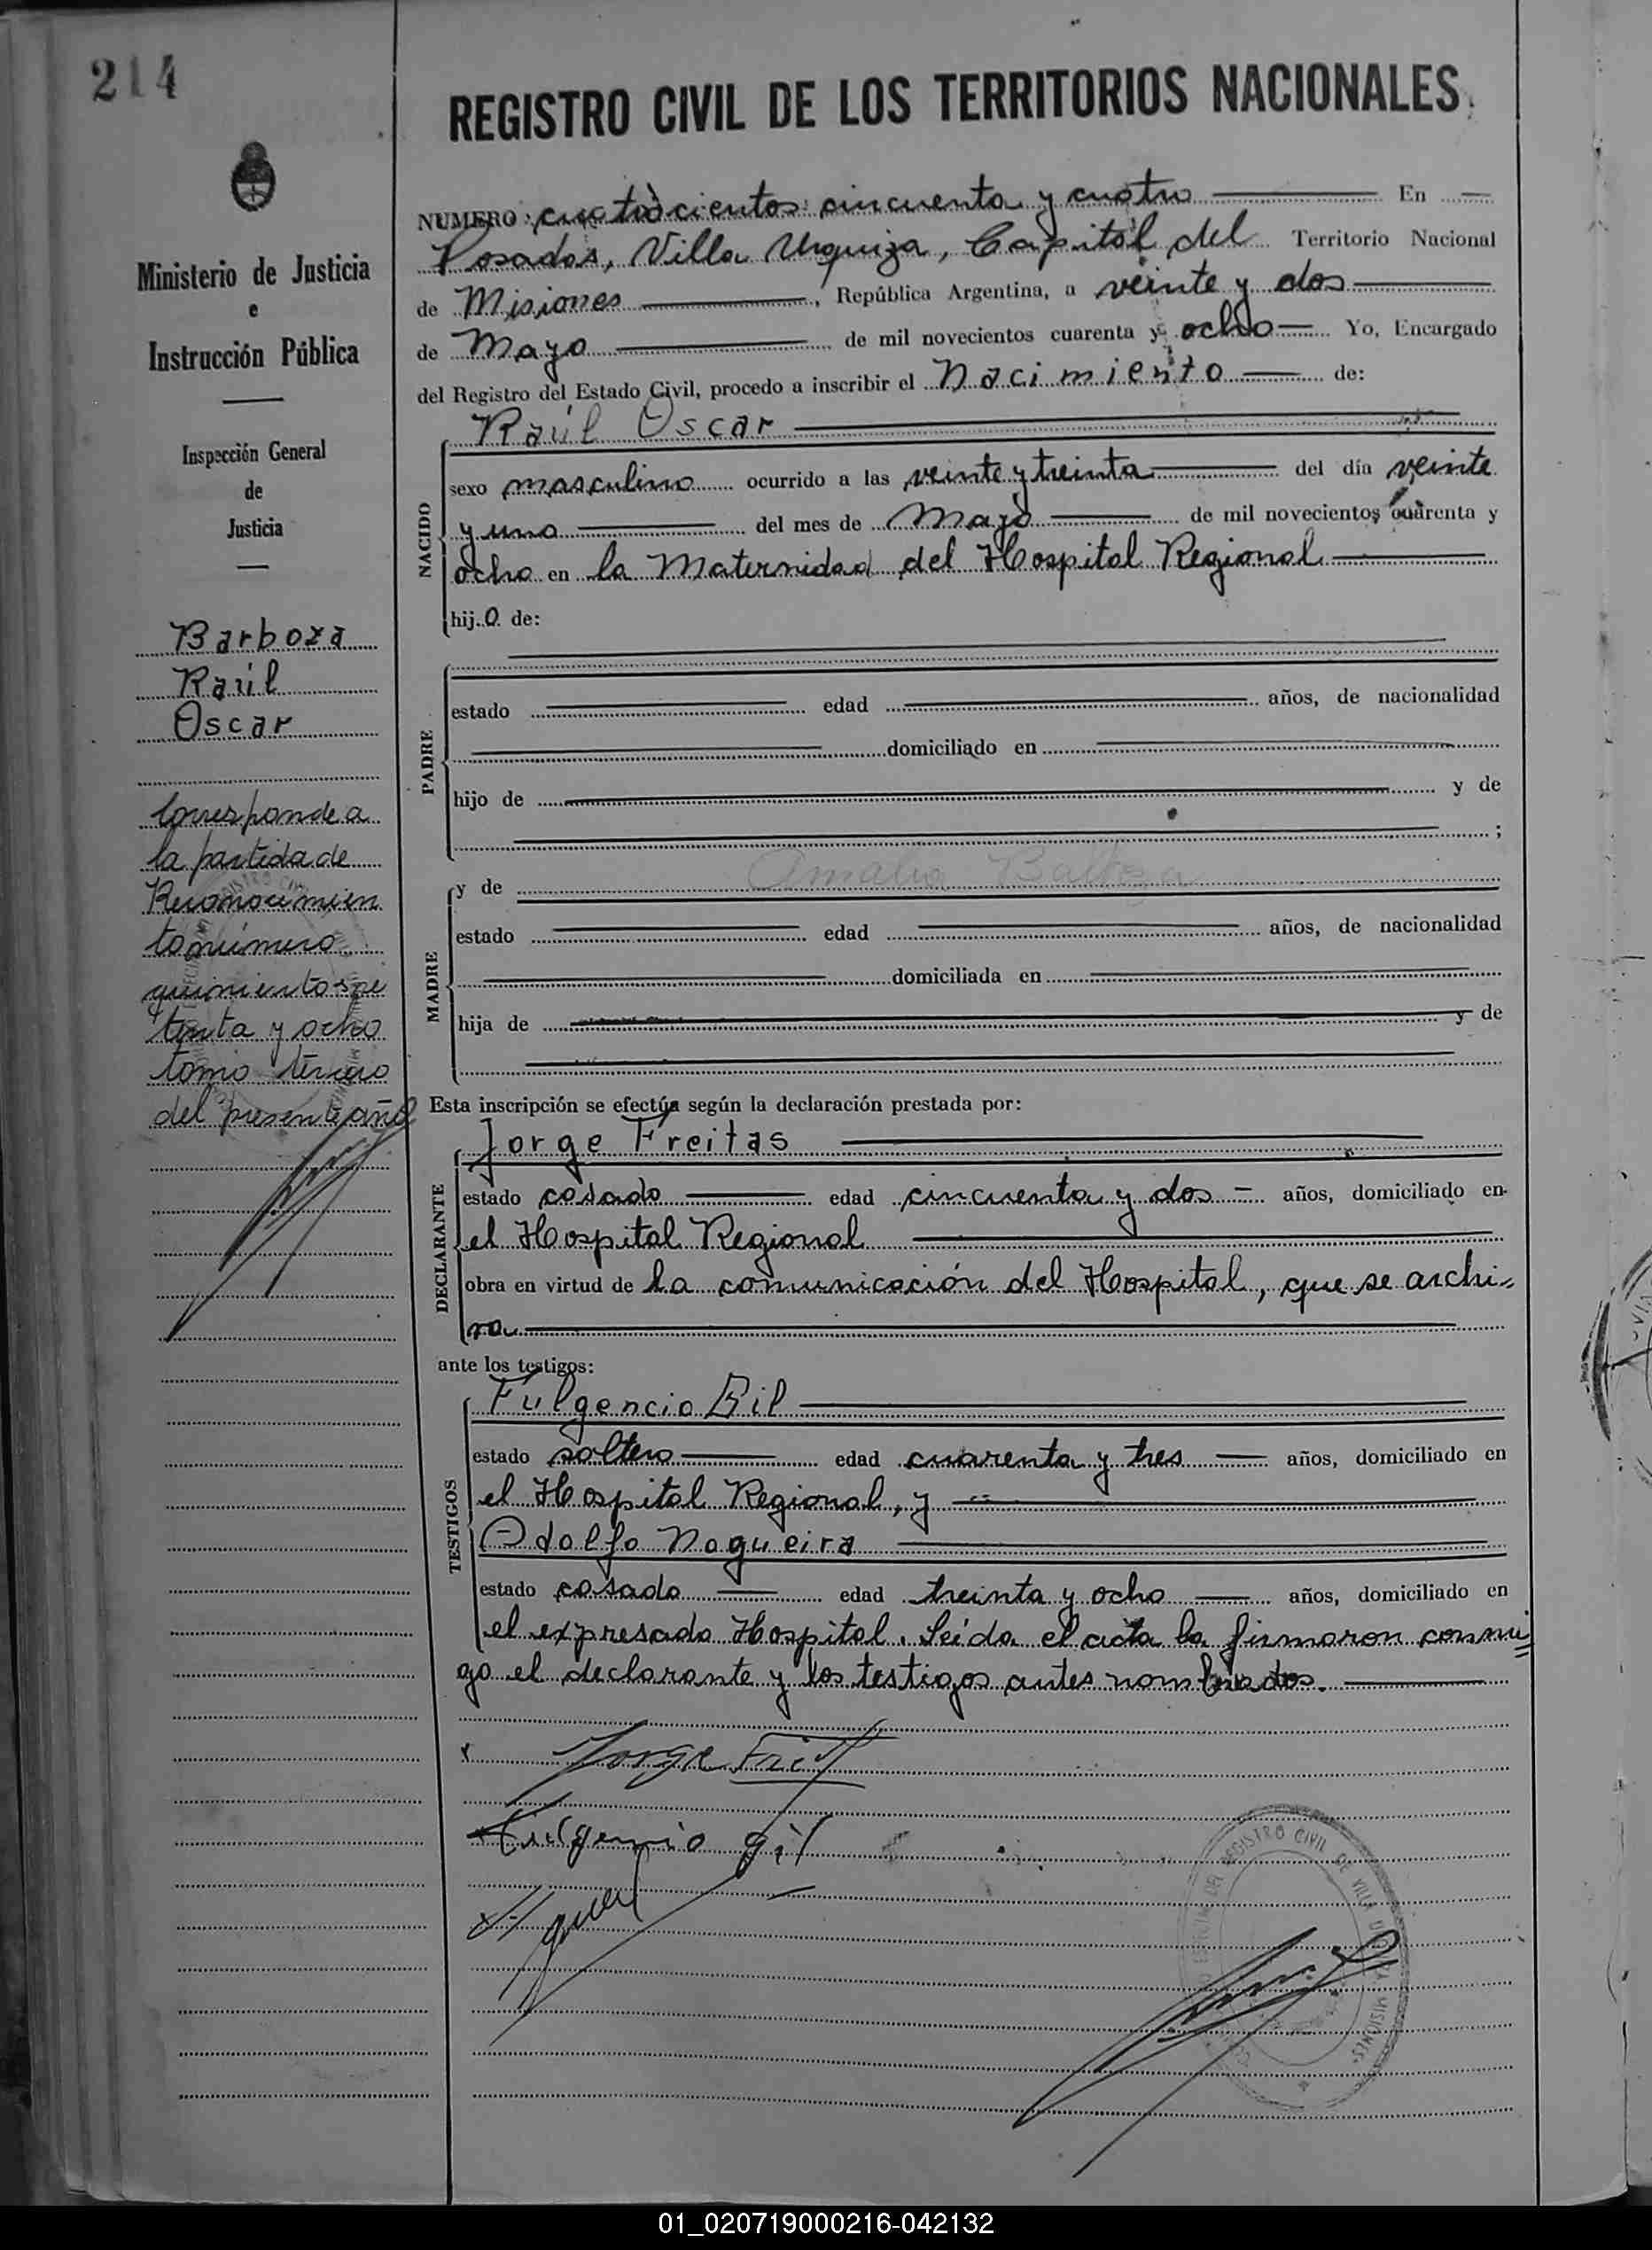 214
REGISTRO CIVIL DE LOS TERRITORIOS NACIONALES
Ministerio de Justicia
e
Instrucción Pública
Inspección General
de
Justicia
Barboza
Raúl
Oscar
Corresponde a
la partida de
Reconocimien
to número
quinientos se
tenta y ocho
tomo tercero
del presente año
NUMERO: cuatrocientos cincuenta y cuatro En
Posadas, Villa Urquiza, Capital del Territorio Nacional
de Misiones, República Argentina, a veinte y dos
de Mayo de mil novecientos cuarenta y ocho Yo, Encargado
del Registro del Estado Civil, procedo a inscribir el Nacimiento de:
Raúl Oscar
NACIDO
sexo masculino ocurrido a las veinte y treinta del día veinte
y uno del mes de Mayo de mil novecientos cuarenta y
ocho en la Maternidad del Hospital Regional
hijo de:
PADRE
estado edad años, de nacionalidad
domiciliado en
hijo de y de
;
MADRE
y de Amalia
estado edad años, de nacionalidad
domiciliada en
hija de y de
Esta inscripción se efectúa según la declaración prestada por:
Jorge Freitas
DECLARANTE
estado casado edad cincuenta y dos años, domiciliado en
el Hospital Regional
obra en virtud de la comunicación del Hospital, que se archi-
va
ante los testigos:
Fulgencio Gil
TESTIGOS
estado soltero edad cuarenta y tres años, domiciliado en
el Hospital Regional, y
Adolfo Nogueira
estado casado edad treinta y ocho años, domiciliado en
el expresado Hospital. Leída el acta la firmaron conmi=
go el declarante y los testigos antes nombrados.
Jorge
Fulgencio Gil
REGISTRO CIVIL DE VILLA URQUIZA MISIONES
01_020719000216-042132